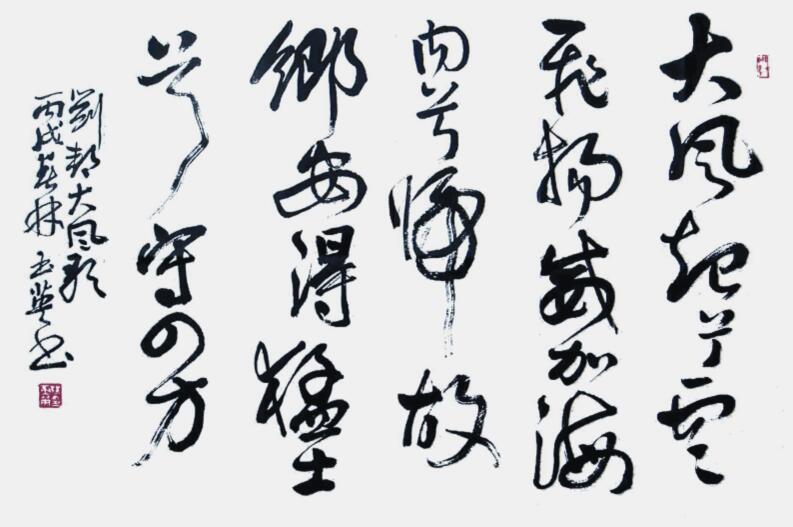 大风起兮雲
飛揚威加海
内兮歸故
鄉安得猛士
兮守四方
劉邦大风歌
丙戌春林玉英书